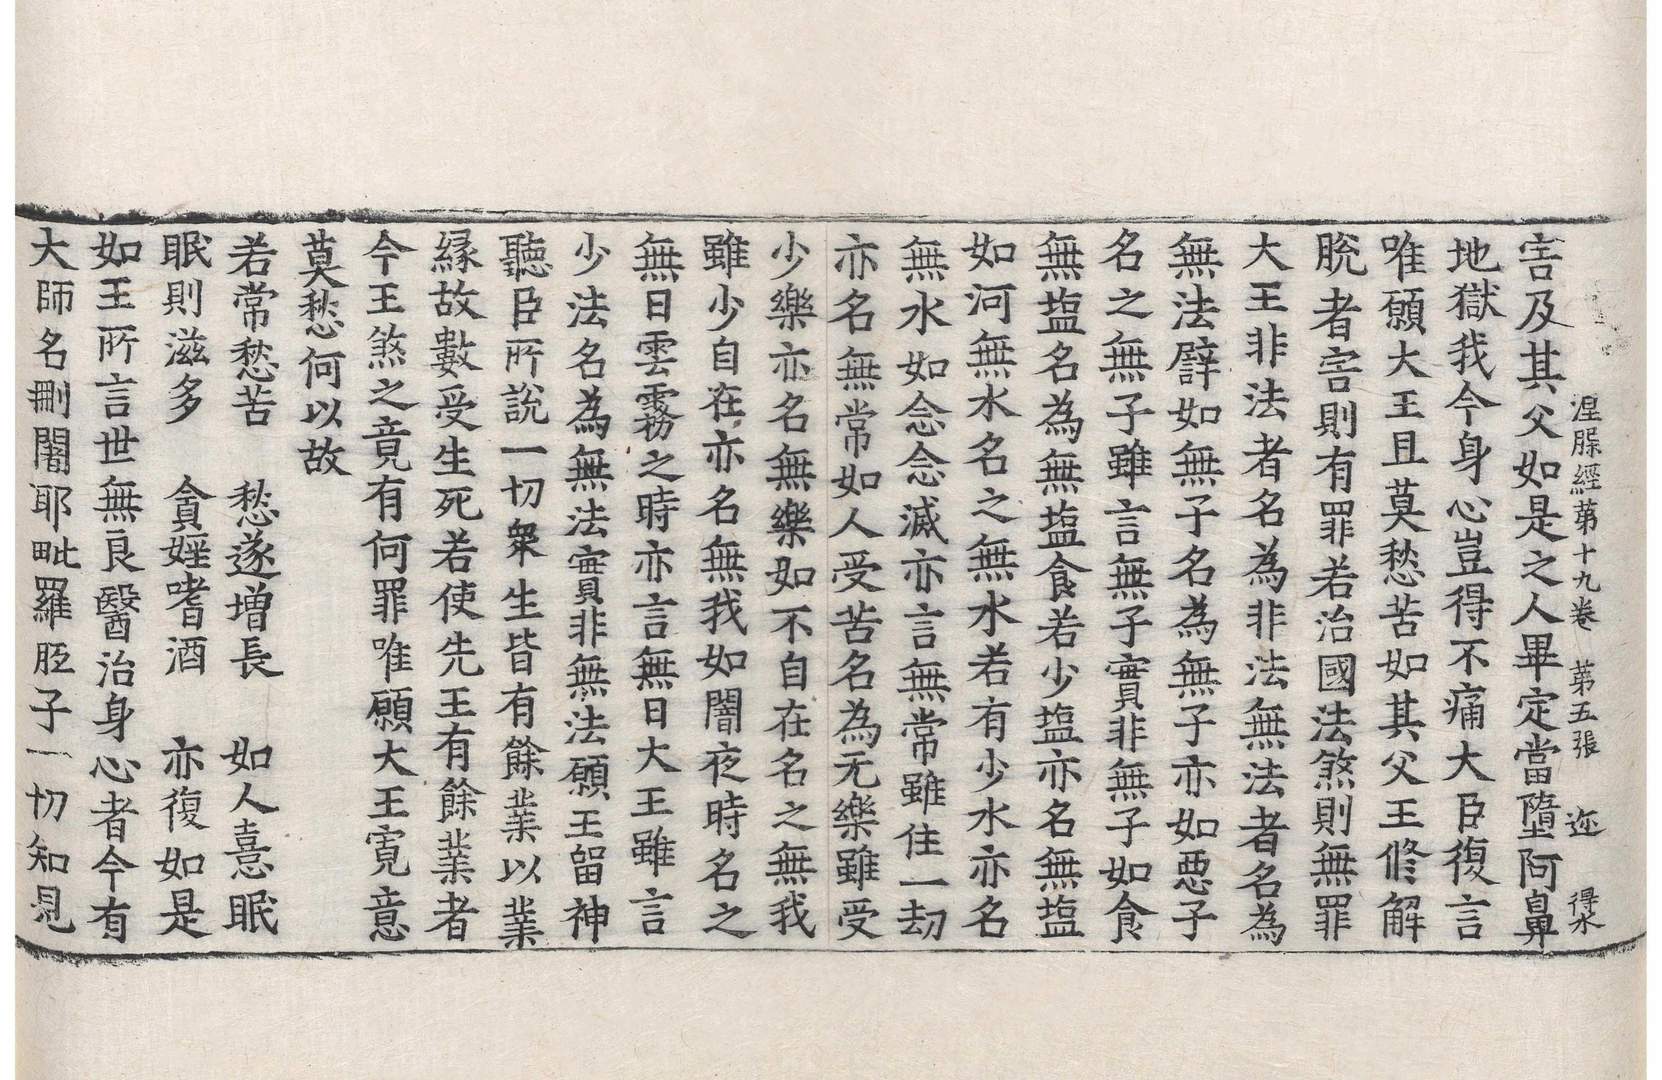 涅槃經第十九卷　第五張　迩　得水
害及其父如是之人畢定當墮阿鼻
地獄我今身心豈得不痛大臣復言
唯願大王且莫愁苦如其父王修解
脫者害則有罪若治國法煞則無罪
大王非法者名為非法無法者名為
無法譬如無子名為無子亦如惡子
名之無子雖言無子實非無子如食
無塩名為無塩食若少塩亦名無塩
如河無水名之無水若有少水亦名
無水如念念滅亦言無常雖住一劫
亦名無常如人受苦名為无樂雖受
少樂亦名無樂如不自在名之無我
雖少自在亦名無我如闇夜時名之
無日雲霧之時亦言無日大王雖言
少法名為無法實非無法願王留神
聽臣所說一切衆生皆有餘業以業
緣故數受生死若使先王有餘業者
今王煞之竟有何罪唯願大王寬意
莫愁何以故
若常愁苦　愁遂增長　如人憙眠
眠則滋多　貪婬嗜酒　亦復如是
如王所言世無良醫治身心者今有
大師名刪闍耶毗羅胝子一切知見